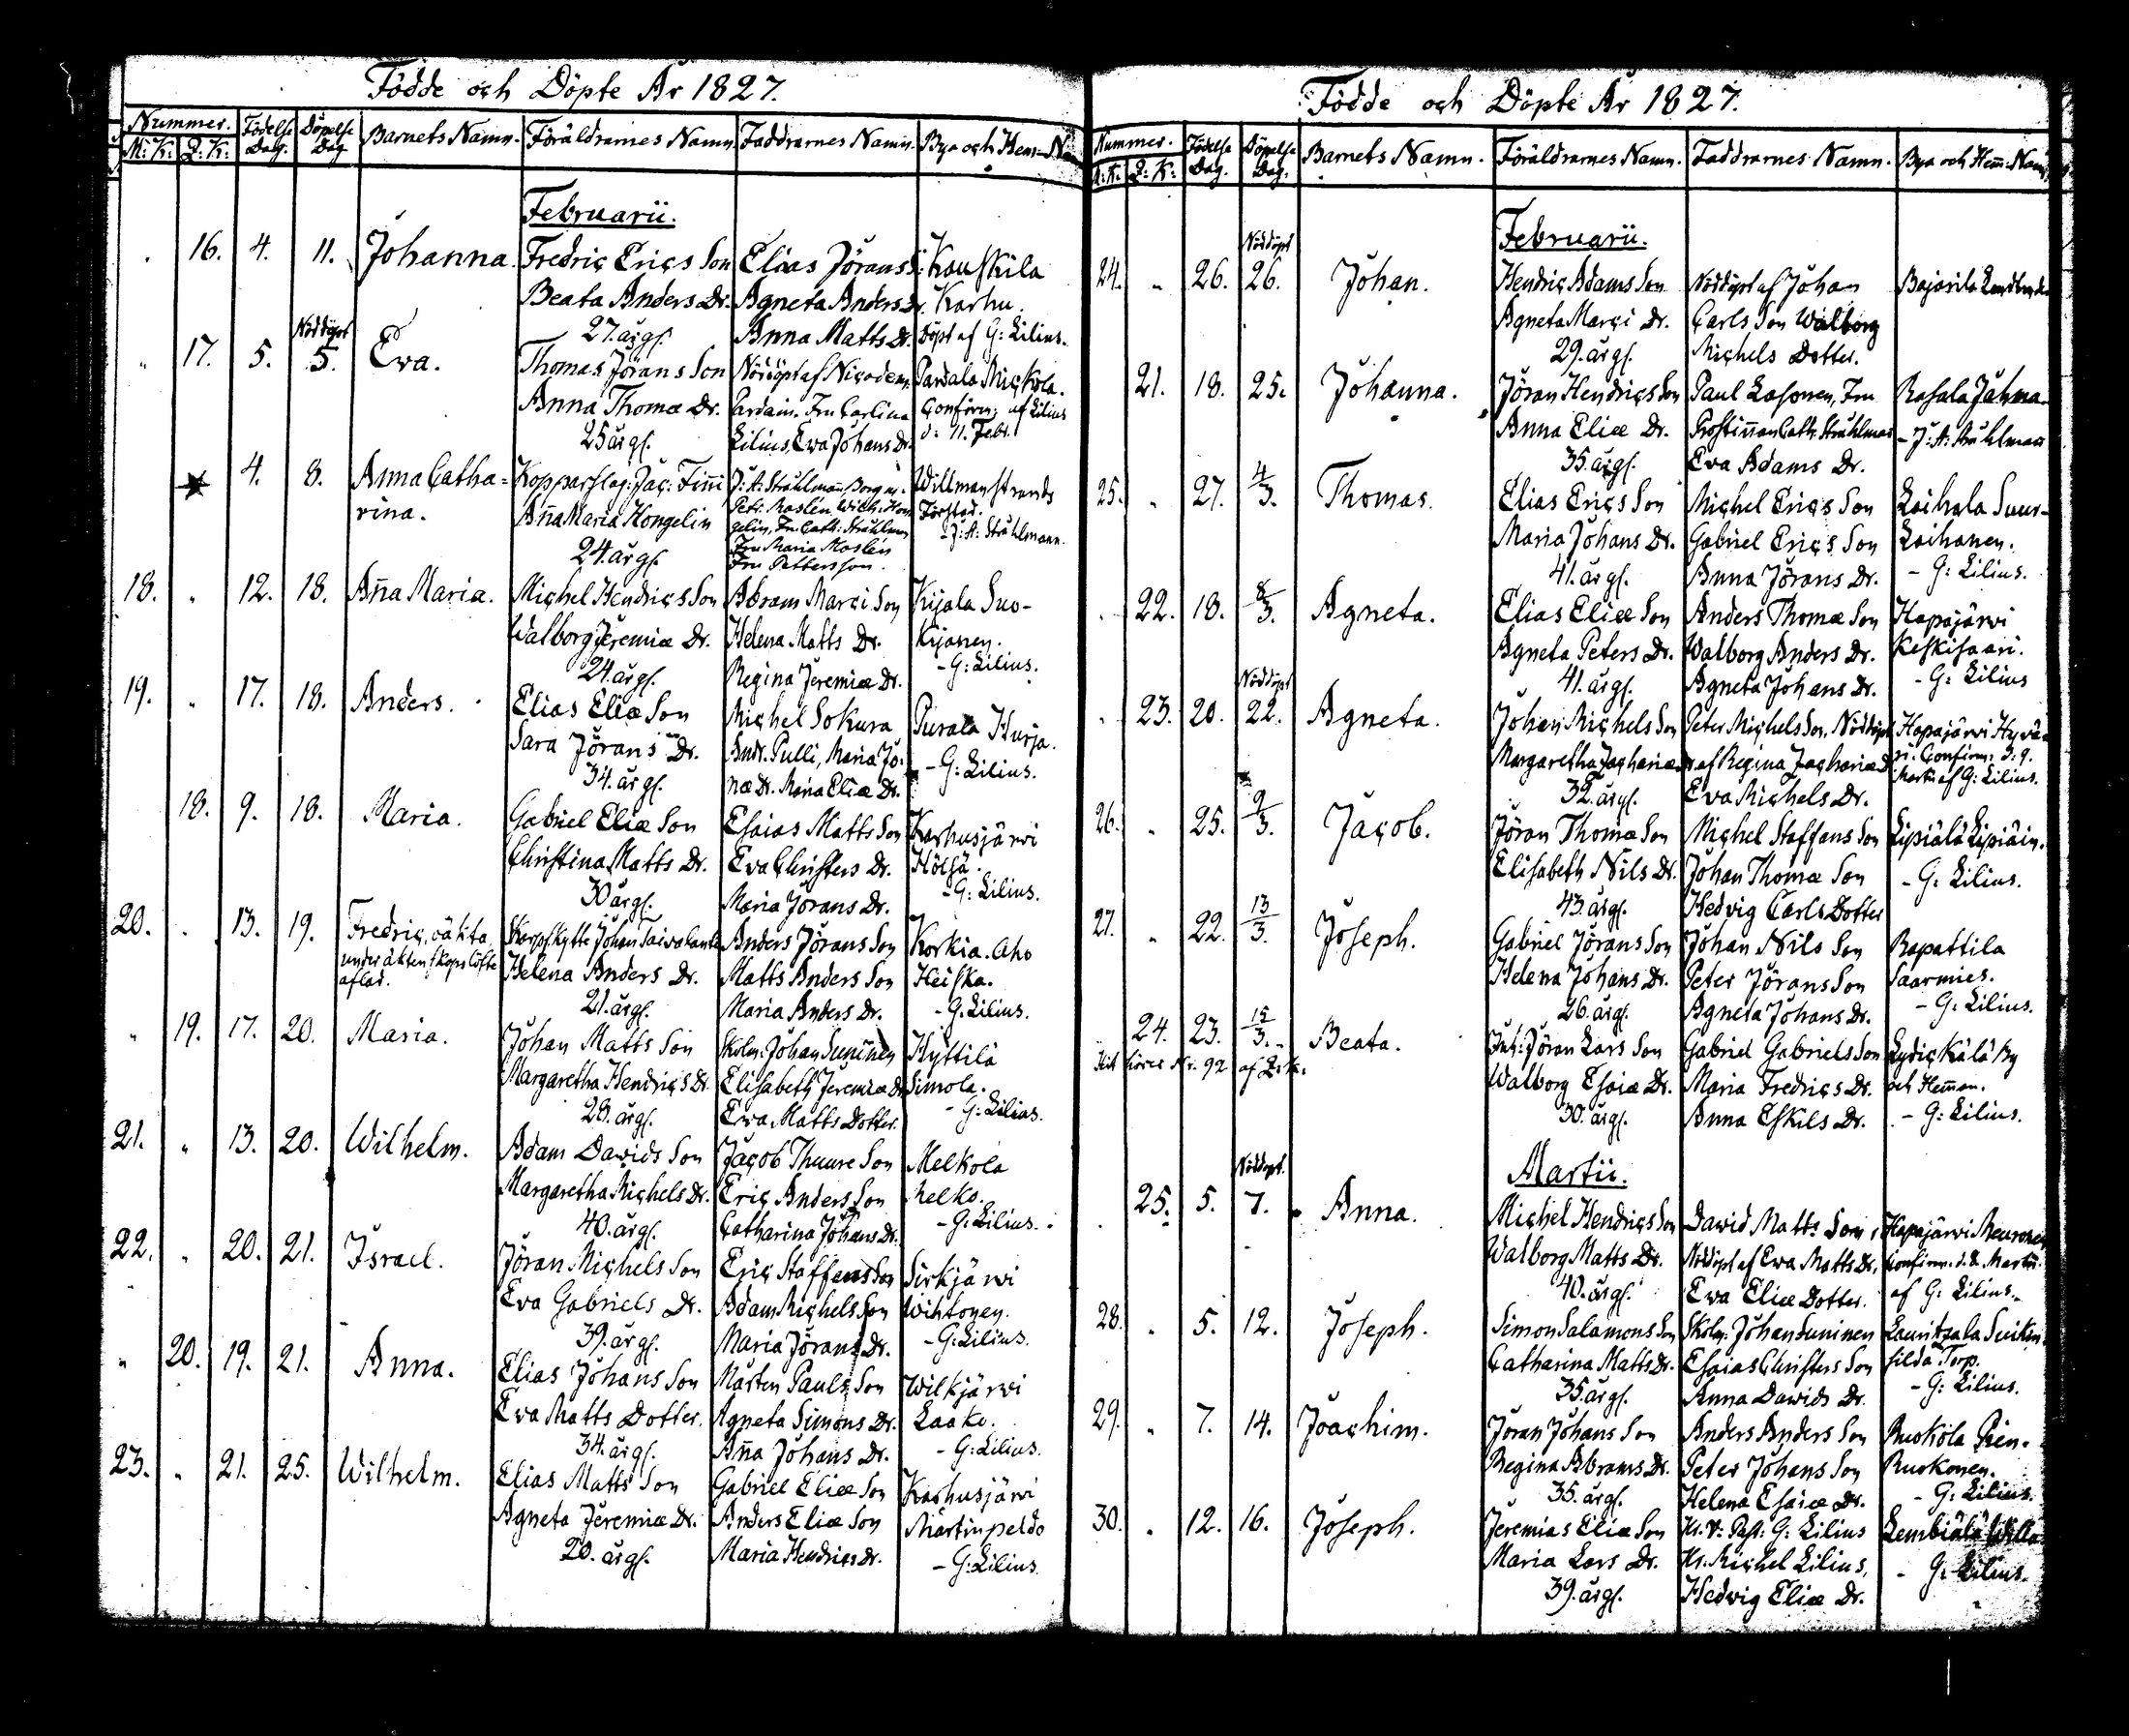 Födde och Döpte År 1827.
Nummer. Födelse Dag. Döpelse Dag Barnets Namn. Föräldrarnes Namn. Faddrarnes Namn. Bya och Hem-Na
M:K: Q:K:
Februarii.
16. 4. 11. Johanna. Fredric Erics Son Elias Jörans S: Kauskila
Beata Anders Dr. Agneta Anders Dr. Karhu.
27. årg. Anna Matts Dr. Döpt af G: Lilius.
17. 5. Nöddöpt 5. Eva. Thomas Jörans Son Nöddöpt af Nicodem: Pardala Mickola.
Anna Thomæ Dr. Pardain. Fru Carlina Confirm: af Lilius
25 årg. Lilius, Ewa Johans Dr. d: 11. Febr.
4. 8. Anna Catha= Kopparslag: Jac: Finn J: A: Stråhlman Borgm: Willmanstrands
rina. Aña Maria Hongelin Petr. Moslén, Wilh: Hon Förstad.
gelin, Fru Cath: Stråhlman - J: A: Stråhlmann.
24. årg. Fru Maria Moslén
Fru Pettersson.
18. " 12. 18. Aña Maria. Michel Hendrics Son Abram Marci Son Kijala Suo-
Walborg Jeremiæ Dr. Helena Matts Dr. Kijanen.
24. årg. Regina Jeremiæ Dr. - G: Lilius.
19. " 17. 18. Anders. Elias Eliæ Son Michel Sokura Purala Hurja.
Sara Jörans Dr. Andr. Pulli, Maria Jo- - G: Lilius.
34. årg. næ Dr. Maria Eliæ Dr.
18. 9. 18. Maria. Gabriel Eliæ Son Esaias Matts Son Karhusjärwi
Christina Matts Dr. Eva Christers Dr. Hötsä.
30 årg. Maria Jörans Dr. - G: Lilius.
20. 13. 19. Fredric, oäkta Skarpskytte Johan Taivalanta Anders Jörans Son Korkia-aho
under äktenskaps löfte Helena Anders Dr. Matts Anders Son Heiska.
aflad. 21. årg. Maria Anders Dr. - G. Lilius.
" 19. 17. 20. Maria. Johan Matts Son Skolm: Johan Suninen Kyttilä
Margaretha Hendrics Dr. Elisabeth Jeremiæ Dr. Simola.
28. årg. Ewa Matts Dotter. - G: Lilius.
21. " 13. 20. Wilhelm. Adam Dawids Son Jacob Thuure Son Melkola
Margaretha Michels Dr. Eric Anders Son Melko.
40. årg. Catharina Johans Dr. - G: Lilius.
22. " 20. 21. Israel. Jöran Michels Son Eric Staffans Son Sirkjärwi
Eva Gabriels Dr. Adam Michels Son Wihtonen.
39. årg. Maria Jörans Dr. - G: Lilius.
" 20. 19. 21. Anna. Elias Johans Son Mårten Pauls Son Wilkjärwi
Eva Matts Dotter. Agneta Simons Dr. Laako.
34. årg. Aña Johans Dr. - G: Lilius.
23. " 21. 25. Wilhelm. Elias Matts Son Gabriel Eliæ Son Karhusjärwi
Agneta Jeremiæ Dr. Anders Eliæ Son Martinpeldo
20. årg. Maria Hendrics Dr. - G: Lilius.
Födde och Döpte År 1827.
Nummer. Födelse Dag. Döpelse Dag. Barnets Namn. Föräldrarnes Namn. Faddrarnes Namn. Bya och Hem: Nam
M:K: Q:K:
Februarii.
24. " 26. Nöddöpt 26. Johan. Hendric Adams Son Nöddöpt af Johan Bajarila
Agneta Marci Dr. Carls Son Walborg
29. årg. Michels Dotter.
21. 18. 25. Johanna. Jöran Hendrics Son Paul Lasonen, Fru Rasala Jahma
Anna Eliæ Dr. Prostiñan Cath: Stråhlman - J: A: Stråhlman
35. årg. Eva Adams Dr.
25. " 27. 4/3. Thomas. Elias Erics Son Michel Erics Son Laihala Suur-
Maria Johans Dr. Gabriel Erics Son Laihanen.
41. årg. Anna Jörans Dr. - G: Lilius.
22. 18. 8/3. Agneta. Elias Eliæ Son Anders Thomæ Son Hapajärwi
Agneta Peters Dr. Walborg Anders Dr. Keskisaari.
41. årg. Agneta Johans Dr. - G: Lilius
23. 20. Nöddöpt 22. Agneta. Johan Michels Son Peter Michels Son, Nöddöpt Hapajärwi Hyvä-
Margaretha Zachariæ Dr. af Regina Zachariæ D. ri. Confirm: d: 9.
32. årg. Eva Michels Dr. Martii af G: Lilius.
26. " 25. 9/3. Jacob. Jöran Thomæ Son Michel Staffans Son Lipiälä Lipiäin.
Elisabeth Nils Dr. Johan Thomæ Son - G: Lilius.
43. årg. Hedvig Carls Dotter
27. " 22. 13/3. Joseph. Gabriel Jörans Son Johan Nils Son Rapattila
Helena Johans Dr. Peter Jörans Son Saarmies.
26. årg. Agneta Johans Dr. - G: Lilius.
24. 23. 15/3. Beata. Inh: Jöran Lars Son Gabriel Gabriels Son Lydic Kälä By
Hit hörer Nr. 92 af Q. K. Walborg Esaiæ Dr. Maria Fredrics Dr. och Heman.
30. årg. Anna Eskils Dr. - G: Lilius.
Martii.
25. 5. Nöddöpt. 7. Anna. Michel Hendrics Son Dawid Matts Son, Hapajärwi Meuronen
Walborg Matts Dr. Nöddöpt af Ewa Matts Dr. Confirm. d. 8. Martii.
40. årg. Eva Eliæ Dotter. af G: Lilius.
28. " 5. 12. Joseph. Simon Salamons Son Skolm: Johan Suninen Lauritsala Suikin
Catharina Matts Dr. Esaias Christers Son silda Torp.
35. årg. Anna Dawids Dr. - G: Lilius.
29. " 7. 14. Joachim. Jöran Johans Son Anders Anders Son Ruohola Pien-
Regina Abrams Dr. Peter Johans Son Ruokonen.
35. årg. Helena Esaiæ Dr. - G: Lilius.
30. " 12. 16. Joseph. Jeremias Eliæ Son Hr. V: Past: G: Lilius Lembiälä
Maria Lars Dr. Hr. Michel Lilius, - G: Lilius.
39. årg. Hedvig Eliæ Dr.